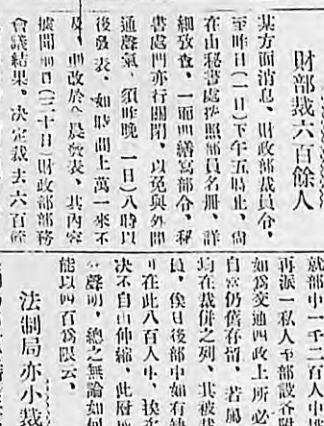 財部裁六百餘人
某方面消息、財政部裁員令、
至昨日(一日)下午五時止、尙
在由秘書處按照部員名册、詳
細攷査、一面則繕寫部令、秘
書處門亦行關閉、以免與外間
通聲氣、須昨晚(一日)八時以
後發表、如時間上萬一來不
及、則改於今晨發表、其內容
據聞前日(三十日)財政部部務
會議結果、決定裁去六百餘
就部中一千二百人中
再派一私人至部設
如爲交通四政上所必
自當仍舊存留、若屬
均在裁併之列、其被裁
員、俟日後部中如有缺
在此八百人中、
決不自由伸縮、此
聲明、總之無論如何
能以四百爲限云、
法制局亦小裁